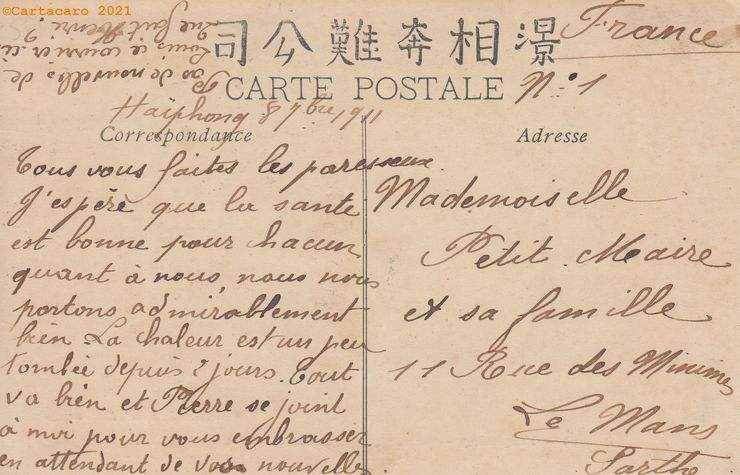 ©Cartacaro 2021
Pas de nouvelles de
Louis ce courrier-ci
Que fait Henri ?
司公難奔相
France
CARTE POSTALE
N° 1
Haïphong 8 7bre 1911
Correspondance
Tous vous faites les paresseux.
J'espère que la santé
est bonne pour chacun
quant à nous, nous nous
portons admirablement
bien. La chaleur est un peu
tombée depuis 2 jours. Tout
va bien et Pierre se joint
à moi pour vous embrasser
en attendant de vos nouvelles
Adresse
Mademoiselle
Petit. Maire
et sa famille
11 Rue des Minimes
Le Mans
Sarthe